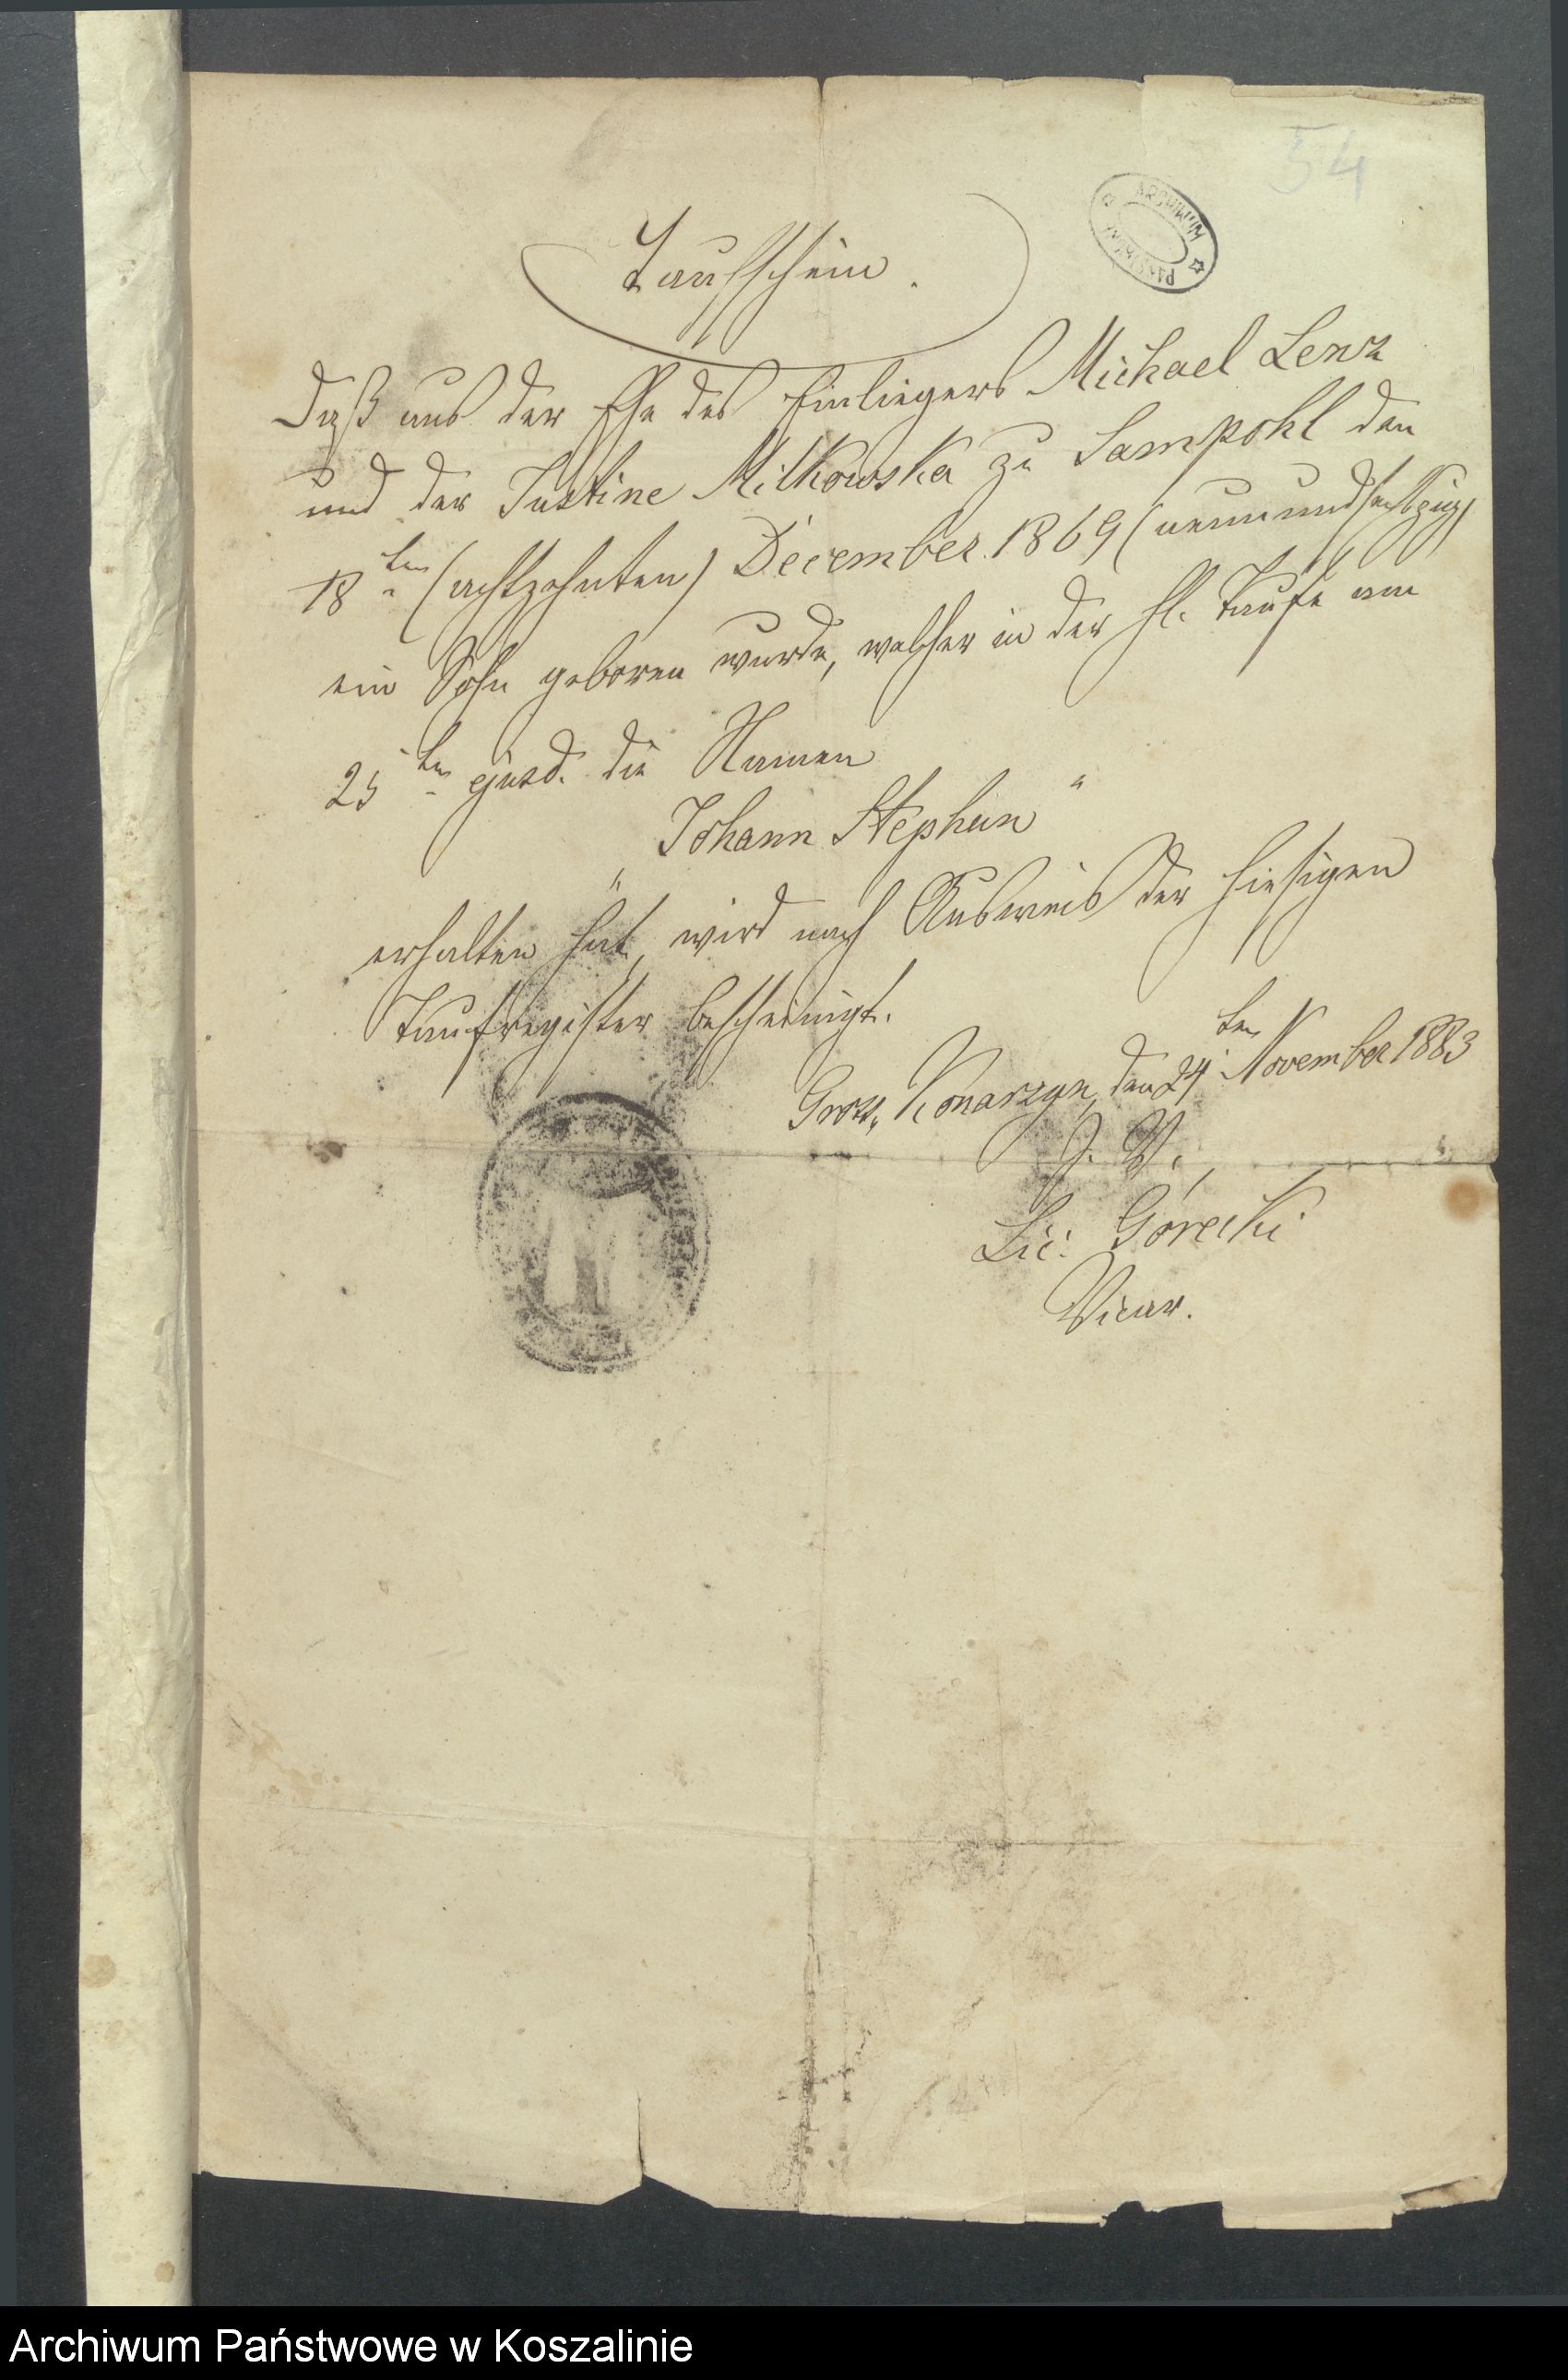 54
ARCHIWUM PAŃSTWOWE
Taufschein.
Daß aus der Ehe des Einliegers Michael Lenz
und der Justine Milkowska zu Sampohl den
18ten (achtzehnten) December 1869 (neunundsechszig)
ein Sohn geboren wurde, welcher in der hl. Taufe am
25ten ejusd. die Namen
„Johann Stephan"
erhalten hat, wird nach Ausweis der hiesigen
Taufregister bescheinigt.
Gross Konarzyn, den 24ten November 1883
J. V.
Lic. Górecki
Vicar.
Archiwum Państwowe w Koszalinie